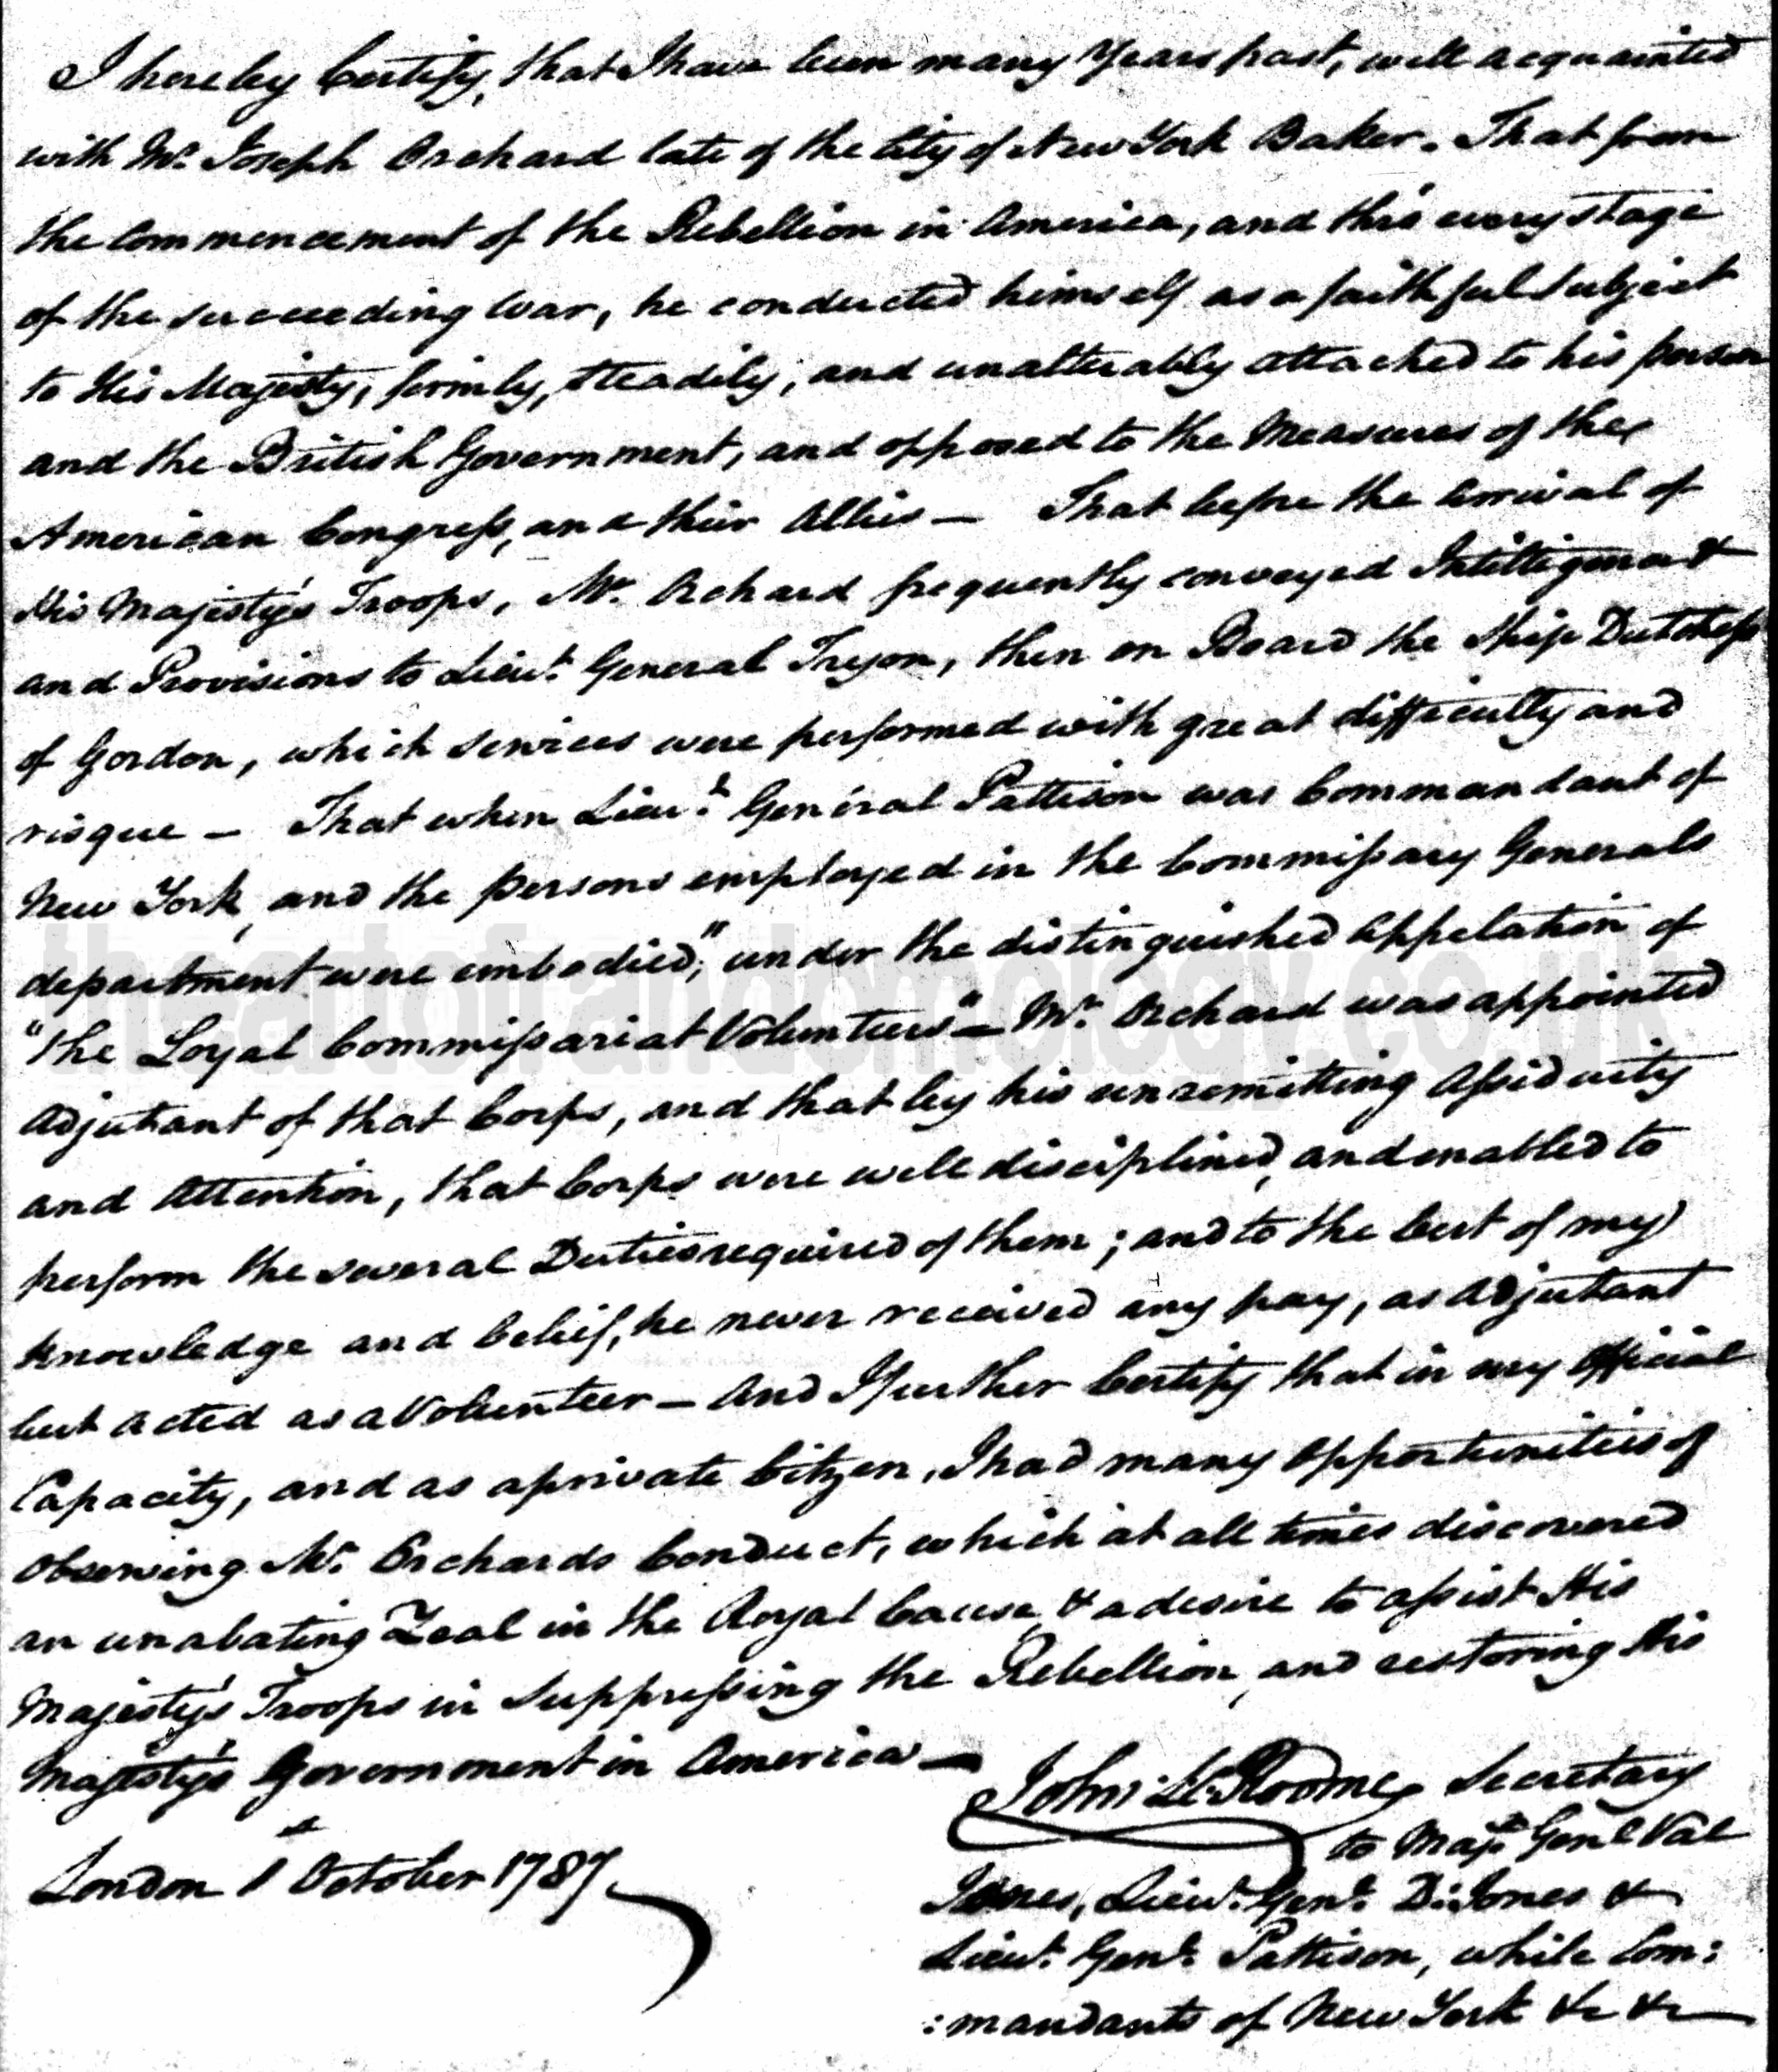 I hereby Certify, that I have been many Years past, well acquainted
with Mr. Joseph Orchard late of the City of New York Baker. That from
the Commencement of the Rebellion in America, and thro' every stage
of the succeeding War, he conducted himself as a faithful Subject
to His Majesty, firmly, steadily, and unalterably attached to his person
and the British Government, and opposed to the Measures of the
American Congress, and their Allies — That before the Arrival of
His Majesty's Troops, Mr. Orchard frequently conveyed Intelligence
and Provisions to Lieut. General Tryon, then on Board the Ship Dutchess
of Gordon, which services were performed with great difficulty and
risque — That when Lieut. General Pattison was Commandant of
New York, and the persons employed in the Commissary Generals
department were embodied, "under the distinguished Appelation of
"the Loyal Commissariat Volunteers" — Mr. Orchard was appointed
Adjutant of that Corps, and that by his unremitting Assiduity
and Attention, that Corps were well disciplined, and enabled to
perform the several Duties required of them; and to the best of my
knowledge and belief, he never received any pay, as Adjutant
but acted as a Volunteer — And I further Certify that in my Official
Capacity, and as a private Citizen, I had many Opportunities of
Observing Mr. Orchards Conduct, which at all times discovered
an unabating Zeal in the Royal Cause, & a desire to assist His
Majesty's Troops in Suppressing the Rebellion, and restoring His
Majesty's Government in America —
John Le Roome Secretary
to Majr. Genl Val
Jones, Lieut. Genl. D: Jones &
Lieut. Genl. Pattison, while Com:
:mandants of New York &c &c
London 1st October 1787
theartofrandomology.co.uk